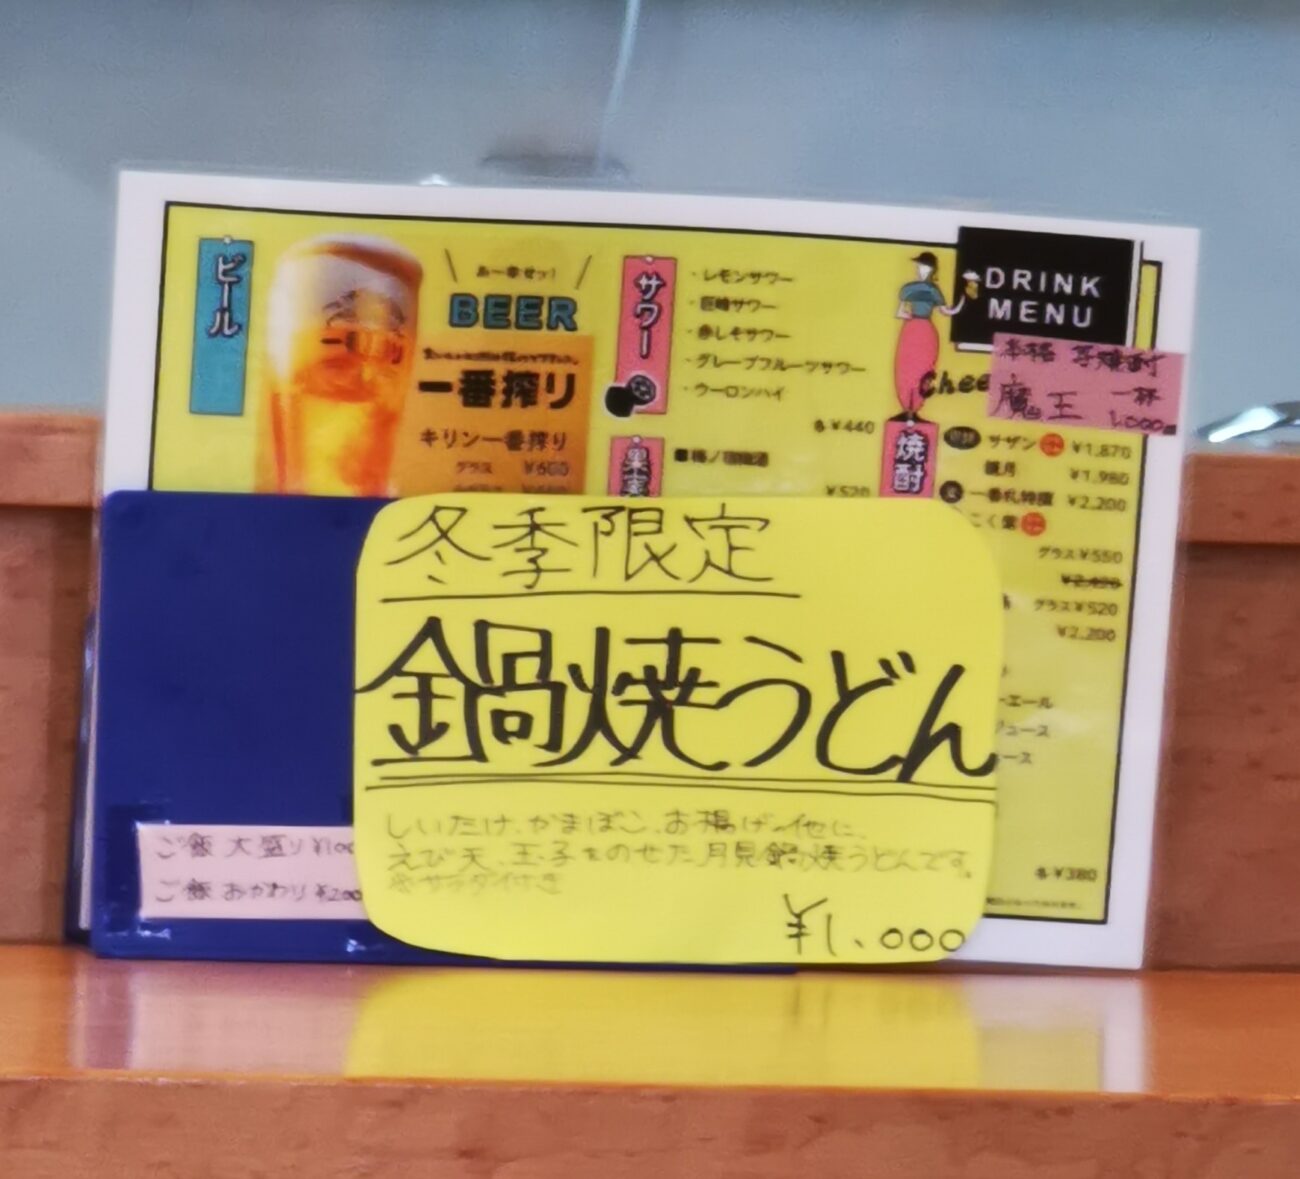 ビール
あ〜幸せッ!
BEER
一番搾り
一番搾り
キリン一番搾り
グラス ¥600
サワー
・レモンサワー
・巨峰サワー
・赤しそサワー
・グレープフルーツサワー
・ウーロンハイ
各¥440
果実
¥520
DRINK
MENU
Chee
本格 芋焼酎
魔王 一杯
1,000
焼酎
サザン ¥1,870
鏡月 ¥1,980
一番札特撰 ¥2,200
こく紫
グラス¥550
¥2,420
グラス¥520
¥2,200
エール
ジュース
ース
各¥380
冬季限定
鍋焼うどん
しいたけ、かまぼこ、お揚げの他に、
えび天、玉子をのせた月見鍋焼うどんです。
※サラダ付き
¥1,000
ご飯 大盛り ¥100
ご飯 おかわり ¥200